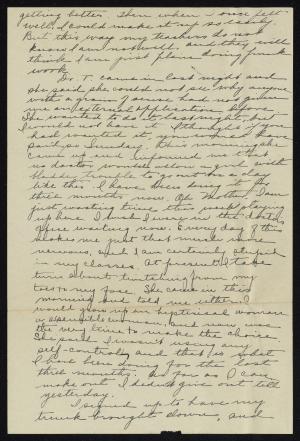 getting better. Then when I once felt
well, I could make it up so easily.
But this way my teachers do not
know I am not well, and they will
think I am just plain doing punk
work.
Dr. T. came in last night and
she said she could not see why anyone
with a grain of sense had not given
me an external application before.
She wanted to do it last night, but
I would not have it. I thought if you
had wanted it, you would have
said so Sunday. This morning she
came up and informed me that
no doctor would allow a girl with
bladder trouble to go out on a day
like this. I have been doing it for
three months now. Oh Mother, I am
just wasting time this way staying
up here. I wish I were in the doctor's
office waiting now. Every day of this
makes me just that much more
nervous, and I am certainly stupid
in my classes. At present I take
turns about tinting from my
toes to my nose. She came in this
morning and told me either I
would grow up an hysterical woman
or a sensible woman, and now was
the very time to make the choice.
She said I wasn't using any
self-control, and that is what
I have been doing for the last
three months. As far as I can
make out I didn't give out till
yesterday.
I signed up to have my
trunk brought down, and